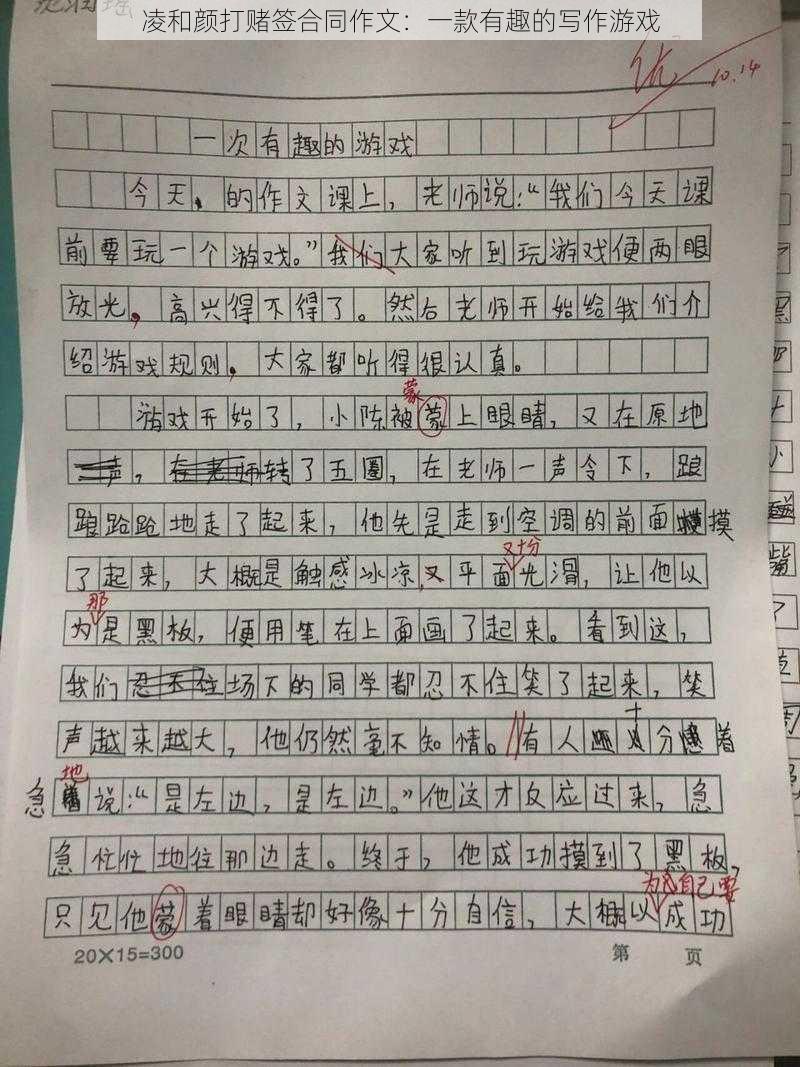 凌和颜打赌签合同作文：一款有趣的写作游戏
优
10.14
一次有趣的游戏
今天，的作文课上，老师说：“我们今天课
前要玩一个游戏。”我们大家听到玩游戏便两眼
放光，高兴得不得了。然后老师开始给我们介
绍游戏规则，大家都听得很认真。
蒙
游戏开始了，小陈被蒙上眼睛，又在原地
声，在老师转了五圈，在老师一声令下，踉
踉跄跄地走了起来，他先是走到空调的前面摸
又十分
了起来，大概是触感冰凉，又平面光滑，让他以
那
为是黑板，便用笔在上面画了起来。看到这，
我们忍不住场下的同学都忍不住笑了起来，笑
声越来越大，他仍然毫不知情。有人十分着
地
急说：“是左边，是左边。”他这才反应过来，急
急忙忙地往那边走。终于，他成功摸到了黑板，
为自己要
只见他蒙着眼睛却好像十分自信，大概以成功
20×15=300
第 页